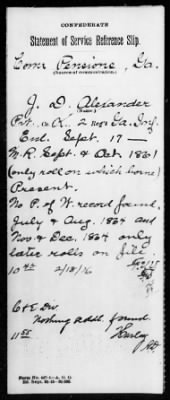 CONFEDERATE
Statement of Service Reference Slip.
Com Pensions, Ga.
(Source of communication.)
J. D. Alexander
(Name.)
Pvt., Co. K, 2 Reg't Ga. Inf.
Enl. Sept. 17 —
M.R. Sept. & Oct. 1861
(only roll on which borne)
Present.
No P. of W. record found.
July & Aug. 1864 and
Nov & Dec. 1864 only
later rolls on file.
10 45 2/18/16
C & E Div
Nothing addl. found.
11 55 Hurley